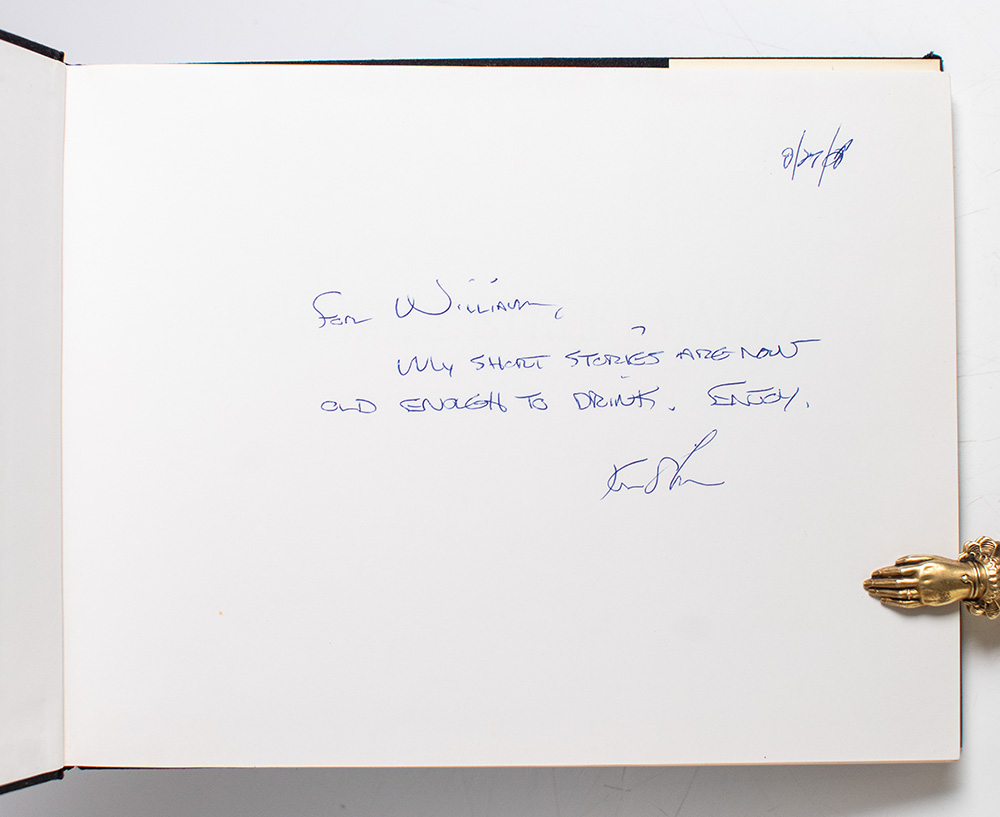 For William,
My short stories are now
old enough to drink. Enjoy.